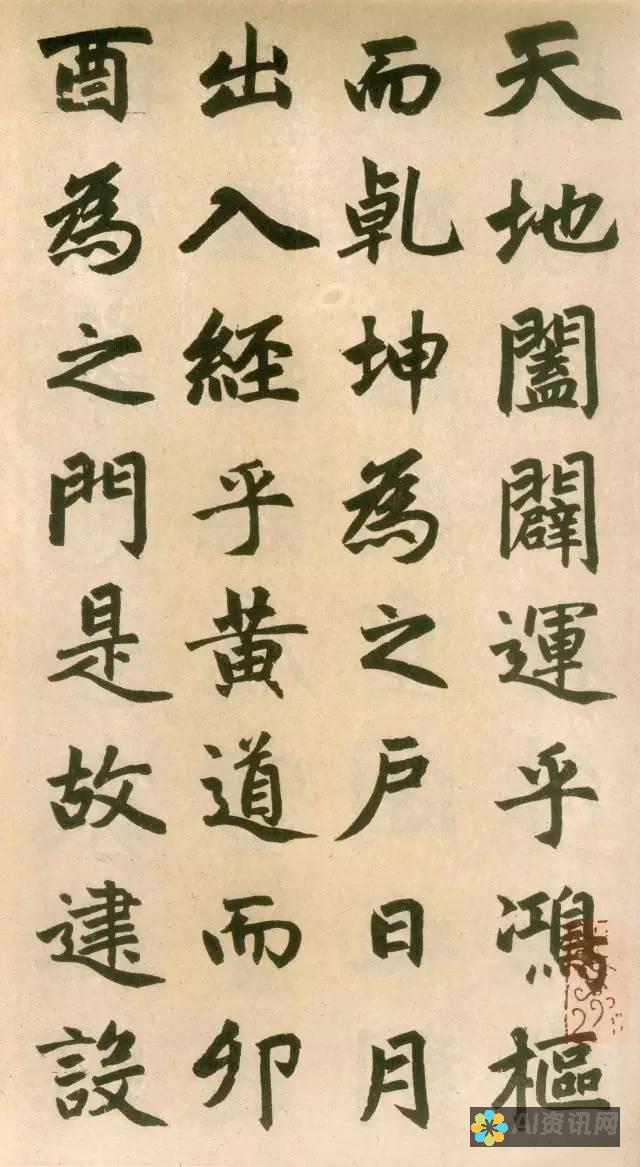 天地闔闢運乎鴻樞
而乹坤為之戶日月
出入經乎黃道而卯
酉為之門是故建設
AI资讯网